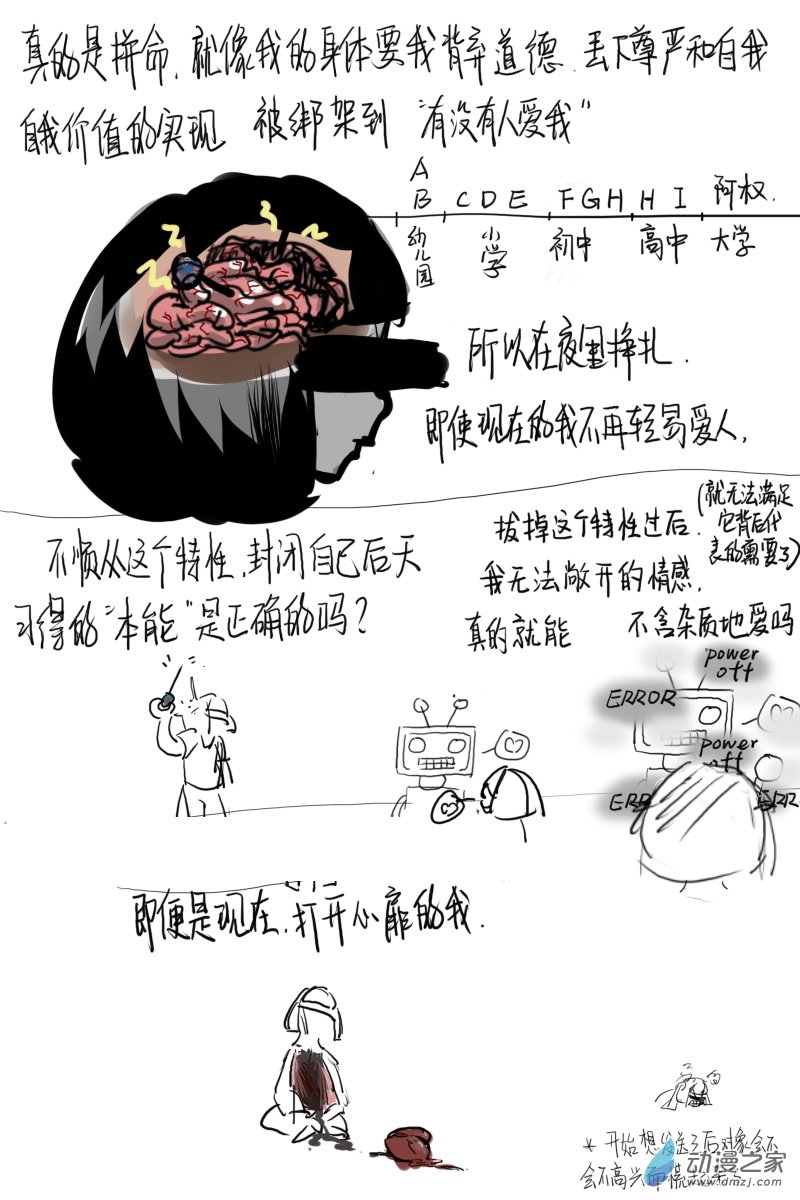 真的是拼命,就像我的身体要我背弃道德,丢下尊严和自我
自我价值的实现 被绑架到 "有没有人爱我"
A
B C D E F G H H I 阿权.
幼儿园 小学 初中 高中 大学
所以在夜里挣扎.
即使现在的我不再轻易爱人,
不顺从这个特性,封闭自己后天
习得的"本能"是正确的吗?
拔掉这个特性过后.
(就无法满足
它背后代
表的需要了)
我无法敞开的情感,
真的就能 不含杂质地爱吗
power
off
ERROR
power
off
ERR
ERR
即便是现在,打开心扉的我.
* 开始想 送了后对象会不
会不高兴而慌
动漫之家
www.dmzj.com